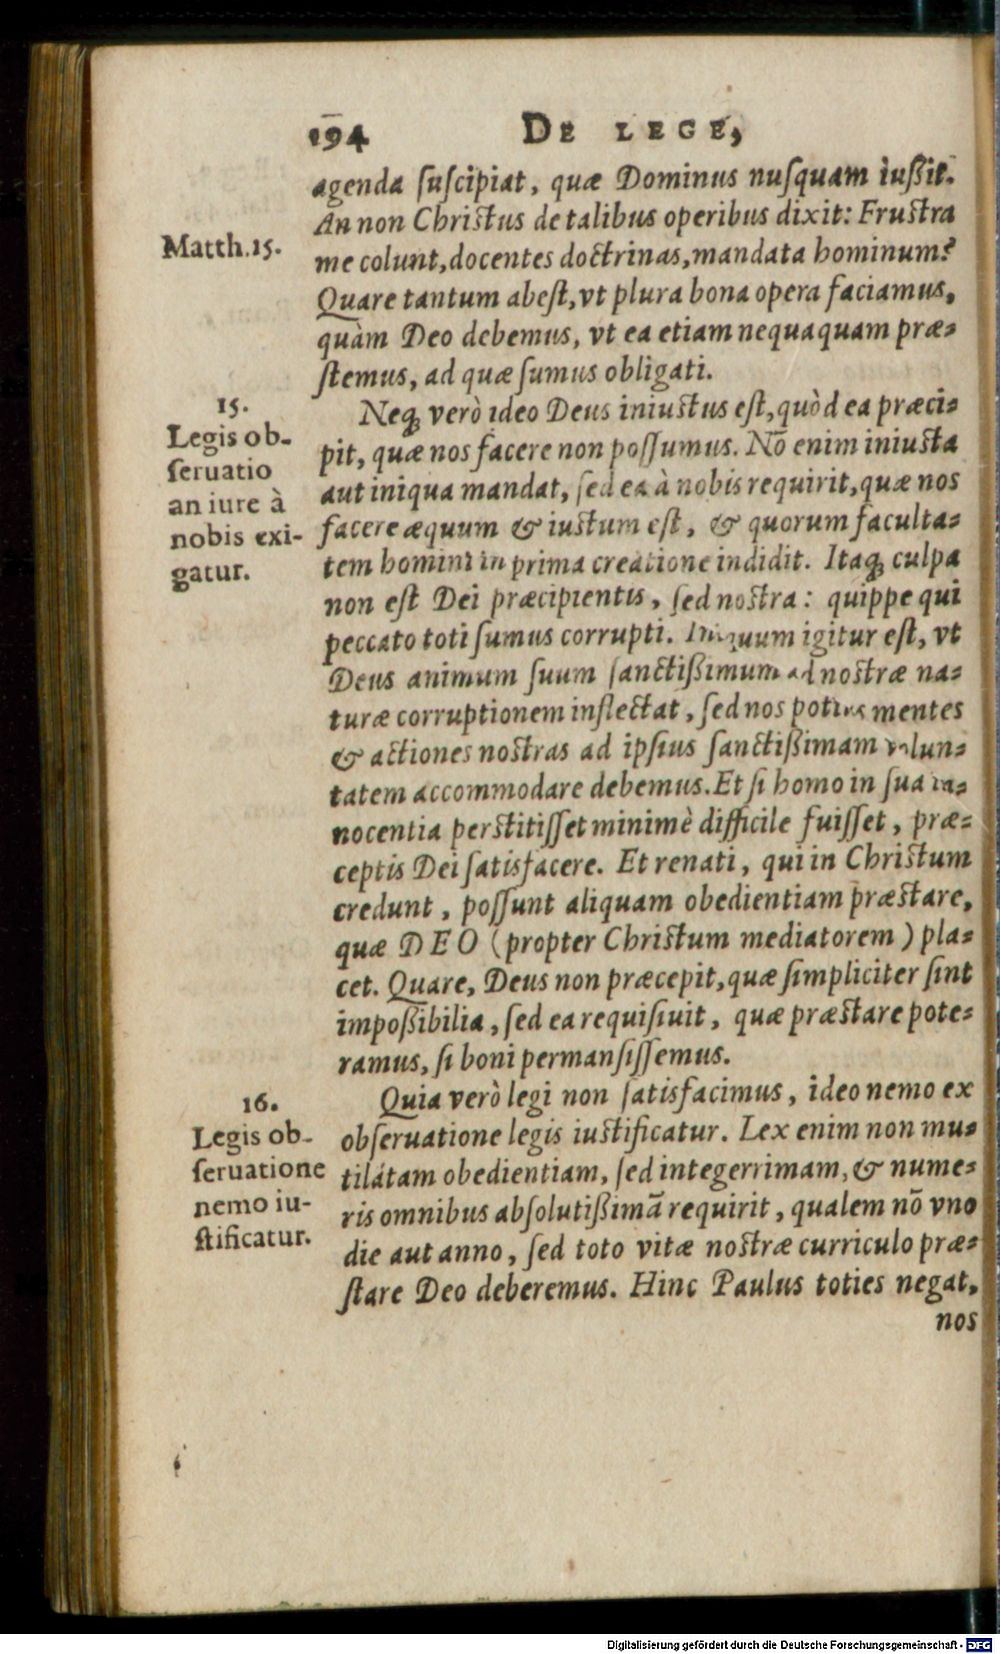 194 DE LEGE,
agenda ſuſcipiat, quæ Dominus nuſquam iußit.
An non Chriſtus de talibus operibus dixit: Fruſtra
Matth.15.
me colunt, docentes doctrinas, mandata hominum?
Quare tantum abeſt, vt plura bona opera faciamus,
quàm Deo debemus, vt ea etiam nequaquam præ-
ſtemus, ad quæ ſumus obligati.
15.
Legis ob-
ſeruatio
an iure à
nobis exi-
gatur.
Neq; verò ideo Deus iniuſtus eſt, quòd ea præci-
pit, quæ nos facere non poſſumus. Nō enim iniuſta
aut iniqua mandat, ſed ea à nobis requirit, quæ nos
facere æquum & iuſtum eſt, & quorum faculta-
tem homini in prima creatione indidit. Itaq; culpa
non eſt Dei præcipientis, ſed noſtra: quippe qui
peccato toti ſumus corrupti. Iniquum igitur eſt, vt
Deus animum ſuum ſanctißimum ad noſtræ na-
turæ corruptionem inflectat, ſed nos potius mentes
& actiones noſtras ad ipſius ſanctißimam volun-
tatem accommodare debemus. Et ſi homo in ſua in-
nocentia perſtitiſſet minimè difficile fuiſſet, præ-
ceptis Dei ſatisfacere. Et renati, qui in Chriſtum
credunt, poſſunt aliquam obedientiam præſtare,
quæ DEO (propter Chriſtum mediatorem) pla-
cet. Quare, Deus non præcepit, quæ ſimpliciter ſint
impoßibilia, ſed ea requiſiuit, quæ præſtare pote-
ramus, ſi boni permanſiſſemus.
16.
Legis ob-
ſeruatione
nemo iu-
ſtificatur.
Quia verò legi non ſatisfacimus, ideo nemo ex
obſeruatione legis iuſtificatur. Lex enim non mu-
tilátam obedientiam, ſed integerrimam, & nume-
ris omnibus abſolutißimā requirit, qualem nō vno
die aut anno, ſed toto vitæ noſtræ curriculo præ-
ſtare Deo deberemus. Hinc Paulus toties negat,
nos
Digitalisierung gefördert durch die Deutsche Forschungsgemeinschaft - DFG